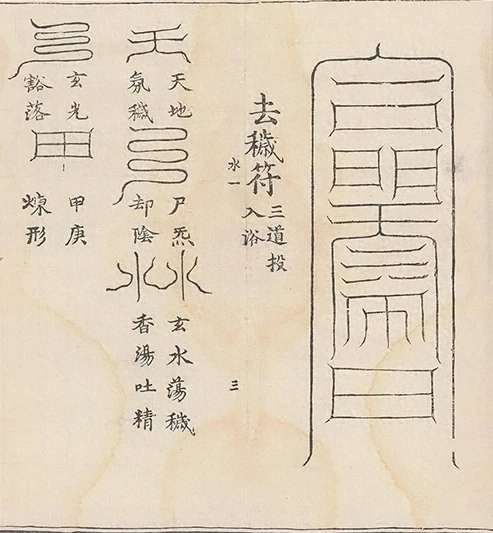 去穢符
三道投
入浴
水一
三
天地
氛穢
尸炁
却陰
玄水蕩穢
香湯吐精
玄光
豁落
甲庚
煉形